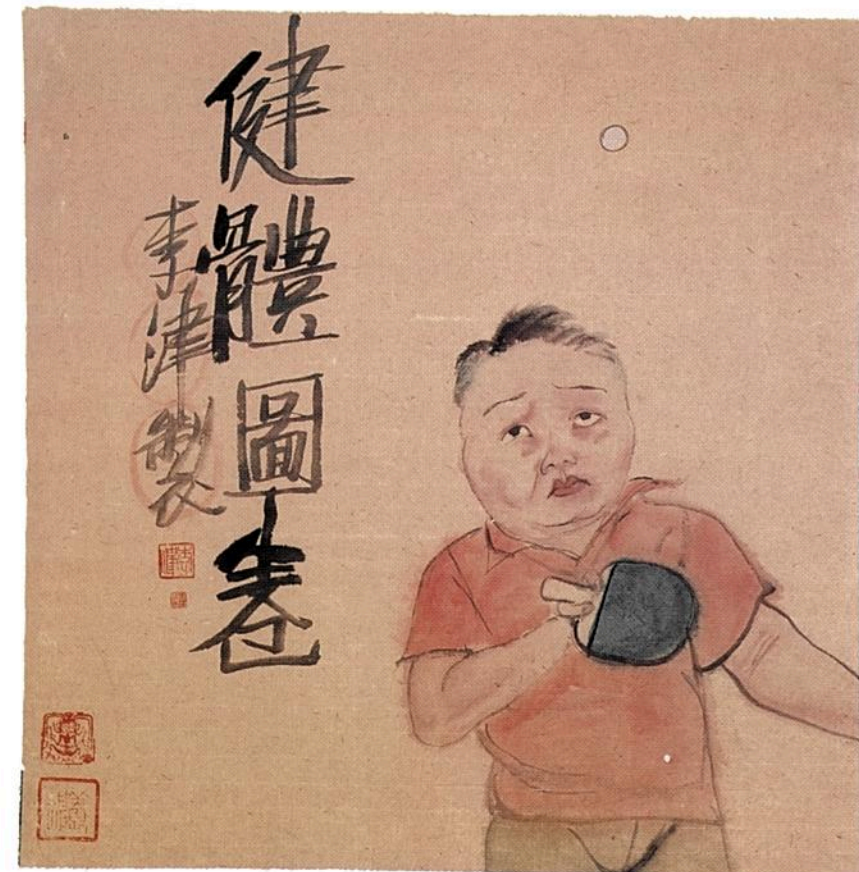 健體圖卷
李津製